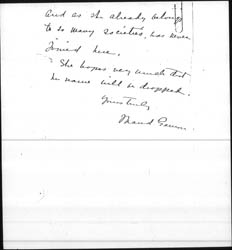 And as she already belongs
to so many societies, has never
joined here.
She hopes very much that
her name will be dropped.
Yours truly,
Maud